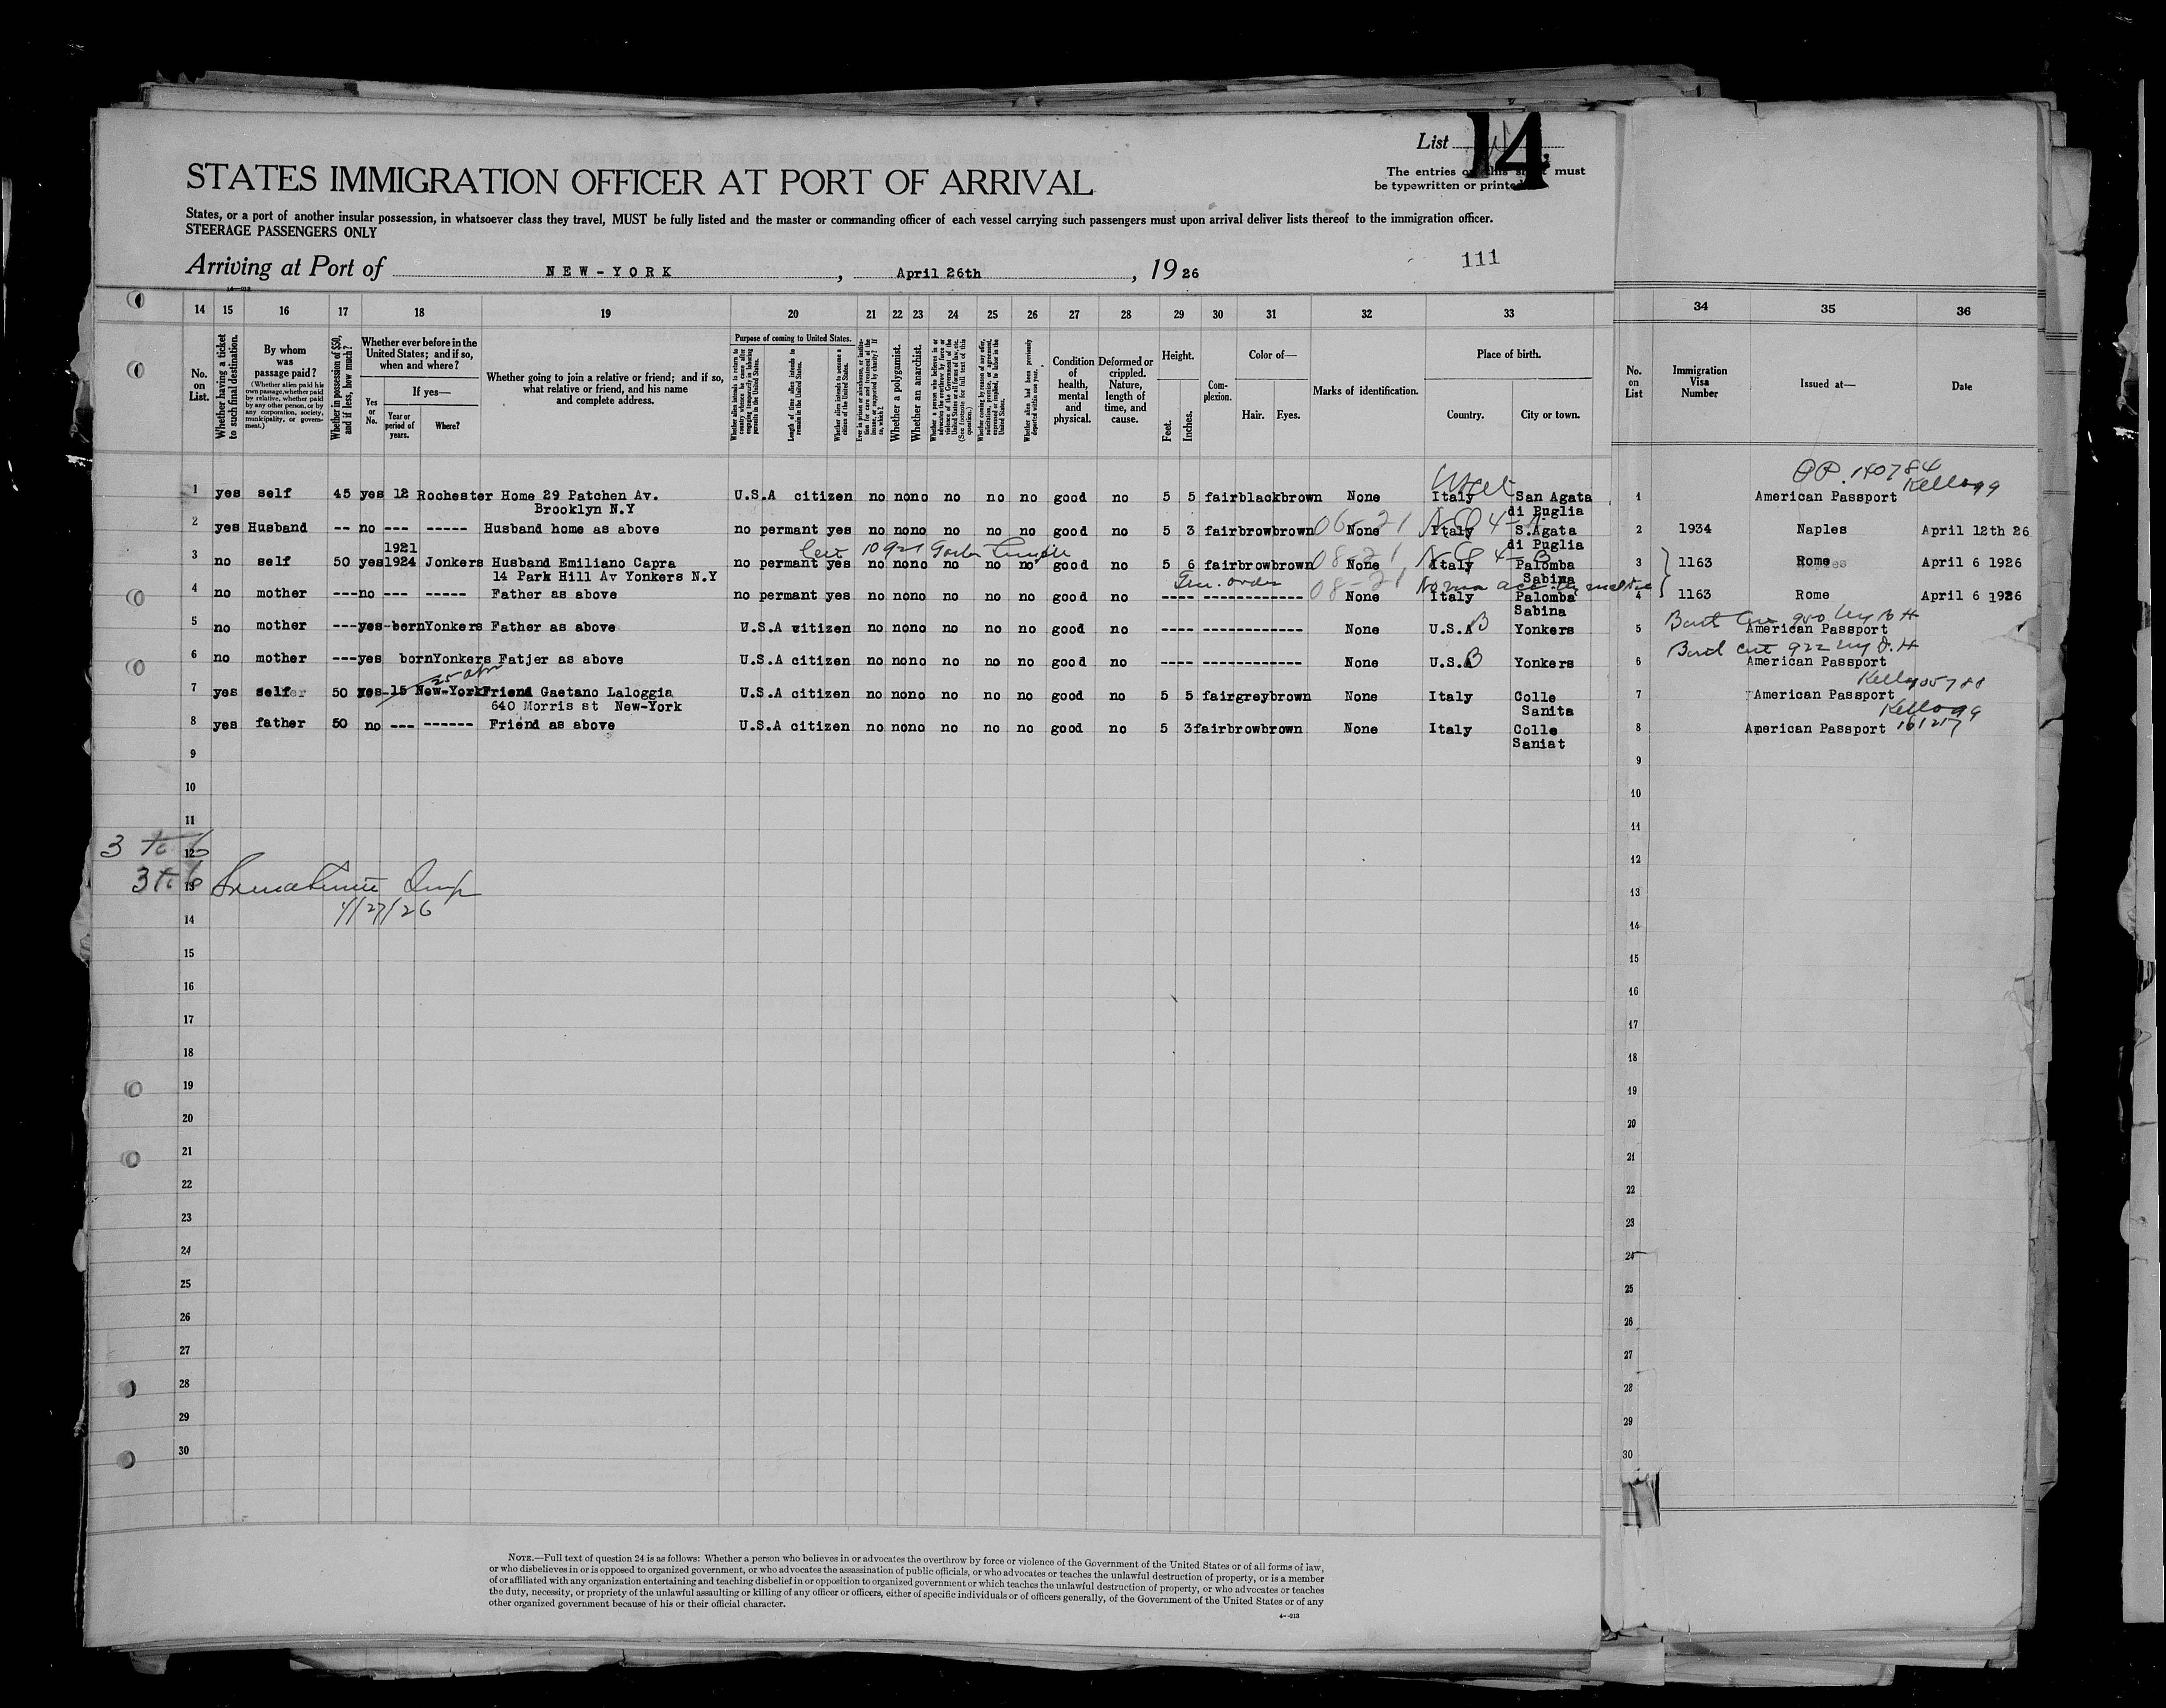 List 14
The entries on this sheet must
be typewritten or printed
STATES IMMIGRATION OFFICER AT PORT OF ARRIVAL
States, or a port of another insular possession, in whatsoever class they travel, MUST be fully listed and the master or commanding officer of each vessel carrying such passengers must upon arrival deliver lists thereof to the immigration officer.
STEERAGE PASSENGERS ONLY
Arriving at Port of NEW-YORK, April 26th, 1926
111
14 15 16 17 18 19 20 21 22 23 24 25 26 27 28 29 30 31 32 33 34 35 36
No. on List.
Whether having a ticket to such final destination.
By whom was passage paid?
(Whether alien paid his own passage, whether paid by relative, whether paid by any other person, or by any corporation, society, municipality, or government.)
Whether in possession of $50, and if less, how much?
Whether ever before in the United States; and if so, when and where?
If yes—
Yes or No.
Year or period of years.
Where?
Whether going to join a relative or friend; and if so, what relative or friend, and his name and complete address.
Purpose of coming to United States.
Length of time alien intends to remain in the United States.
Whether alien intends to become a citizen of the United States.
Whether a polygamist.
Whether an anarchist.
Condition of health, mental and physical.
Deformed or crippled. Nature, length of time, and cause.
Height.
Feet. Inches.
Complexion.
Color of—
Hair. Eyes.
Marks of identification.
Place of birth.
Country. City or town.
No. on List
Immigration Visa Number
Issued at—
Date
OP. 140784
Kellogg
1 yes self 45 yes 12 Rochester Home 29 Patchen Av. U.S.A citizen no no no no no no good no 5 5 fair black brown None Italy San Agata 1 American Passport
Brooklyn N.Y di Puglia
2 yes Husband -- no --- ----- Husband home as above no permant yes no no no no no no good no 5 3 fair brow brown 06-21 None Italy S.Agata 2 1934 Naples April 12th 26
1921 di Puglia
3 no self 50 yes 1924 Jonkers Husband Emiliano Capra no permant yes no no no no no no good no 5 6 fair brow brown 08-21 None Italy Palomba 3 1163 Rome April 6 1926
14 Park Hill Av Yonkers N.Y Sabina
4 no mother --- no --- ----- Father as above no permant yes no no no no no no good no ---- ------------ 08-21 None Italy Palomba 4 1163 Rome April 6 1926
Sabina
5 no mother --- yes born Yonkers Father as above U.S.A citizen no no no no no no good no ---- ------------ None U.S.A B Yonkers 5 American Passport
6 no mother --- yes born Yonkers Fatjer as above U.S.A citizen no no no no no no good no ---- ------------ None U.S.A B Yonkers 6 American Passport
7 yes self 50 yes 15 New-York Friend Gaetano Laloggia U.S.A citizen no no no no no no good no 5 5 fair grey brown None Italy Colle 7 American Passport
640 Morris st New-York Sanita
Kellogg
8 yes father 50 no --- ------ Friend as above U.S.A citizen no no no no no no good no 5 3 fair brow brown None Italy Colle 8 American Passport 161217
Saniat
9 9
10 10
11 11
3 to 6
12 12
3 to 6
13 13
4/27/26
14 14
15 15
16 16
17 17
18 18
19 19
20 20
21 21
22 22
23 23
24 24
25 25
26 26
27 27
28 28
29 29
30 30
NOTE.—Full text of question 24 is as follows: Whether a person who believes in or advocates the overthrow by force or violence of the Government of the United States or of all forms of law,
or who disbelieves in or is opposed to organized government, or who advocates the assassination of public officials, or who advocates or teaches the unlawful destruction of property, or is a member
of or affiliated with any organization entertaining and teaching disbelief in or opposition to organized government or which teaches the unlawful destruction of property, or who advocates or teaches
the duty, necessity, or propriety of the unlawful assaulting or killing of any officer or officers, either of specific individuals or of officers generally, of the Government of the United States or of any
other organized government because of his or their official character.